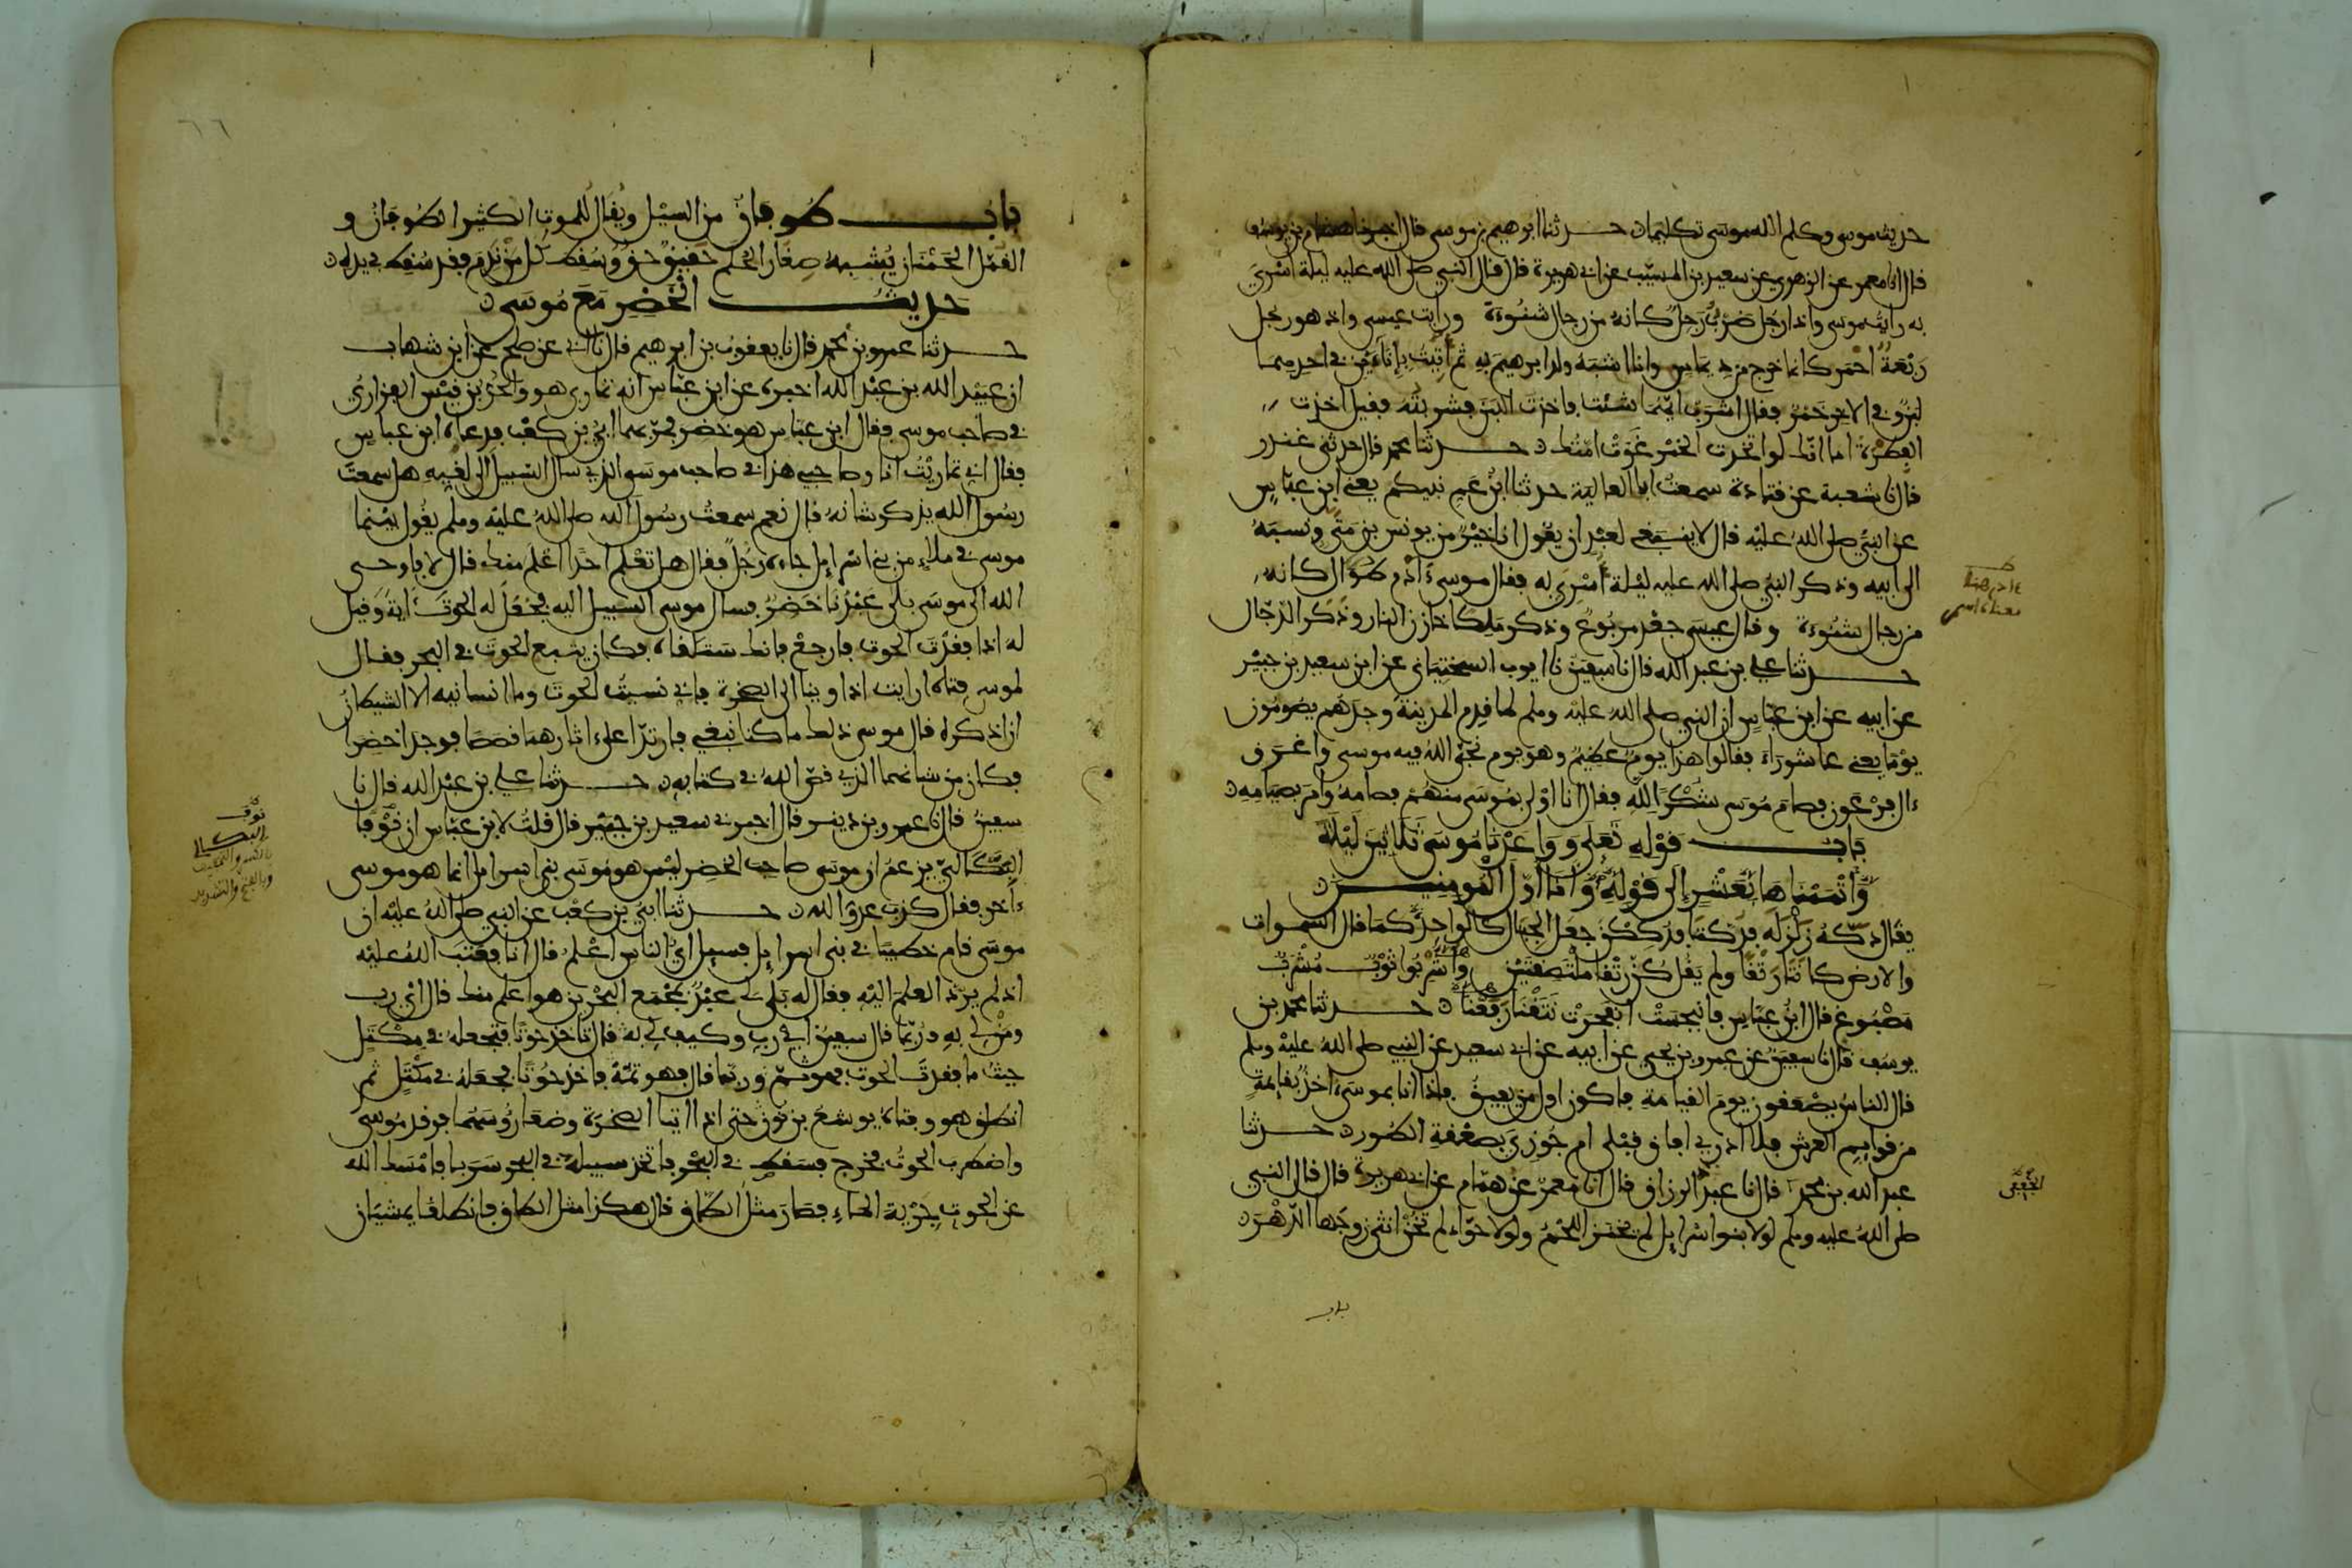 حديث موسى وكلم الله موسى تكليما حدثنا ابرهيم بن موسى قال اخبرنا هشام بن يوسف
قال انا معمر عن الزهري عن سعيد بن المسيّب عن ابي هريرة قال قال النبي صلى الله عليه ليلة اسْرِيَ
به رايت موسى واذا رجل ضرْبٌ رَجِلٌ كانهُ من رجال شنُوءَةَ ورايت عيسى واذ هو رجل
رَبْعَةٌ احْمَر كانما خرج من دِيماسٍ وانا اشبَهُ ولد ابرهيمَ به ثم أُتِيتُ بإنَاءَيْن في احدهما
لبنٌ وفي الاخر خَمْرٌ فقال اشرَبْ ايَّهما شئت فاخذت اللبَنَ فشربْتُه فقيل اخذت
الفِطْرَةَ اما انّك لو اخذت الخمْرَ غَوَتْ امّتُك حدثنا محمد قال حدثني غندر
قال نا شعبة عن قتادة سمعتُ ابا العالية حدثنا ابنُ عمِ نبيكم يعني ابن عبّاسٍ
عن النبيّ صلى اللهُ عليْه قال لا ينبغي لعبْدٍ ان يقُول انا خيْرٌ من يونس بن مَتَّى ونسبَهُ
الى ابيه وذكر النبيّ صلى الله عليه ليْلة أُسْرِيَ به فقال موسى ءَادَم طُوَالٌ كانه
من رجال شنُوءَة وقال عيسى جعْد مربُوعٌ وذكر مَلِكًا خازن النار وذكر الدّجّال
حدثنا علي بن عبد الله قال نا سفين نا ايوب السختِيَاني عن ابن سعيد بن جبيْر
عن ابيه عن ابن عبّاسٍ ان النبي صلى الله عليه وسلم لما قدم المدينةَ وجدَهُم يصُومُون
يوْما يعني عاشُورَاءَ فقالوا هذا يومٌ عظيمٌ وهو يوم نجّى اللهُ فيه موسى واغرق
ءال فرْعَون فصام مُوسَى شكْرًا للّهِ فقال انا اوْلى بمُوسَى منْهُمْ فصامهُ وامَرَ بصيامِهِ
باب قوْلِهِ تعَلى وَوَاعَدْنَا مُوسَى ثَلَاثِينَ لَيْلَةً
وَّاتْمَمْنَاهَا بِعَشْرٍ إلى قَوْلِهِ وَّأَنَا أَوَّل الْمُومِنِينَ
يقال دكّهُ زَلْزَلَه فدُكتَا فدُكِكْنَ جعَلَ الجِبَال كالوَاحِد كمَا قال السمَوات
والارض كانتَا رَتْقًا ولم يقُل كُنّ رَتْقًا ملْتَصِقَتَيْن وَأُشْرِبُوا ثَوْبٌ مُشْرَبٌ
مَصْبُوغٌ قال ابن عبّاسٍ فانبجَسَتْ انفجَرَتْ نَتَقْنَا رَفَعْنَا حدثنا محمد بن
يوسُف قال نا سفيَن عن عمرو بن يحيى عن ابيه عن ابي سعيد عن النبي صلى اللهُ عليْهِ وسلم
قال الناسُ يصْعَقون يومَ القيامةِ فاكون اول من يفيقُ فاذا انا بموسَى ءاخذٌ بقايمةٍ
من قوايم العرش فلا ادري افاق قبْلي ام جُوزِيَ بصعْقةِ الطُور حدثنا
عبد الله بن محمد قال نا عبد الرزاق قال انا معمرٌ عن همّام عن ابي هريرة قال قال النبي
صلى اللهُ عليه وسلم لولا بنوا اسْرايل لم يخنز اللحْمُ ولولا حوّاء لم تخُنْ انثى زوجَها الدّهْرَ
ءادم هنا
معناه اسمر
الجُعْفي
باب
باب طُوفَانٌ من السيْل ويُقَال للموت الكثير الطُوفَانُ و
القُمّل الحَمْنَان يُشْبِهُ صِغَار الحَلَم حَقِيقٌ حَقٌّ وسُقِطَ كلّ مَنْ نَدِمَ فقد سُقِطَ في يده
حديث الخَضِرِ مَعَ مُوسَى
حدثنا عمرو بن محمد قال نا يعقوبُ بن ابرهيم قال نا ابي عن صلح عن ابن شهاب
ان عبَيْد الله بن عبْد الله اخبره عن ابن عبّاس انه تمارى هو والحُرّ بن قيْس الفزاريُّ
في صاحب موسى فقال ابن عبّاس هو خضر فمرّ بهما ابيّ بن كعْب فدعاه ابن عباس
فقال اني تمارَيْتُ انا وصاحبي هذا في صاحب موسى الذي سال السّبيل الى لُقيِه هل سمعتَ
رسُول الله يذكر شانهُ قال نعم سمعتُ رسُول الله صلى اللهُ عليْه وسلم يقُول بيْنما
موسى في ملاءٍ من بني اسْرايل جاءه رجُلٌ فقال هل تعْلم احدًا اعْلَم منك قال لا فاوحى
الله الى موسَى بلى عبْدُنا خَضِرٌ فسال موسى السّبيل اليه فجُعِل له الحوتُ آيةً وقيل
له اذا فقدْتَ الحوت فارجعْ فانك ستلقاه فكان يتْبع الحوتَ في البحر فقال
لموسى فتاه ارايت اذ اوينا الى الصخرة فاني نسيتُ الحوتَ وما انسانيه الا الشيطانُ
ان اذكره قال موسى ذلك ما كنا نبغي فارتدّا على اثارهما قصَصًا فوجدا خضِرًا
فكان من شانهما الذي قصّ اللهُ في كتابهِ حدثنا علي بن عبْد الله قال نا
سفينُ قال نا عمرو بن دينر قال اخبرني سعيد بن جبَيْر قال قلتُ لابن عبّاس ان نَوْفا
البِكَاليّ يزعمُ ان موسى صاحب الخضِر ليْس هو مُوسَى بني اسرايل انما هو موسى
ءاخر فقال كذب عدوّ الله حدثنا ابيّ بن كعْب عن النبي صلى اللهُ عليْه ان
موسَى قام خطيبًا في بني اسرايل فسيل ايّ الناس اعْلمُ قال انا فعتَبَ اللهُ عليْه
اذ لم يردّ العلمَ اليْه فقال له بَلَى لي عبْدٌ بمجْمَع البحْريْن هو اعلم منك قال ايْ رب
ومَنْ لي به ورُبّما قال سفينُ ايْ ربِّ وكيف لي به قال تاخذ حُوتًا فتجعلهُ في مِكْتَلٍ
حيثُ ما فقدتَّ الحوت فهو ثَمّ وربّما قال فهو ثمّهْ فاخذ حُوتًا فجعَلهُ في مكْتَلٍ ثم
انطلق هو وفتاهُ يوشعُ بن نُون حتى اذا اتيا الصخرَةَ وضعَا رُؤُسَهُما فرقد مُوسَى
واضطرب الحوتُ فخرج فسَقط في البحْر فاتخذ سبيله في البحر سَرَبا فامْسَك الله
عن الحوت جِرْيةَ الماءِ فصَارَ مثْلَ الطاق قال هكذا مثل الطاق فانطلقا يمشيَان
نوف
البكالي
بالكسر والتخفيف
وبالفتح والتشديد
٦٦